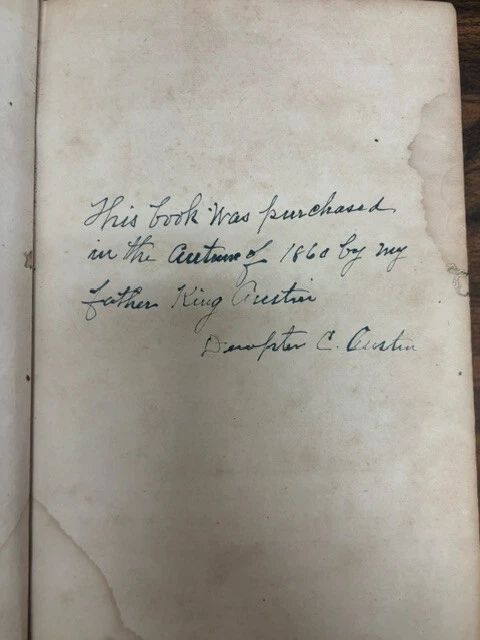 This book was purchased
in the Autum of 1860 by my
father King Austin
Dempster C. Austin